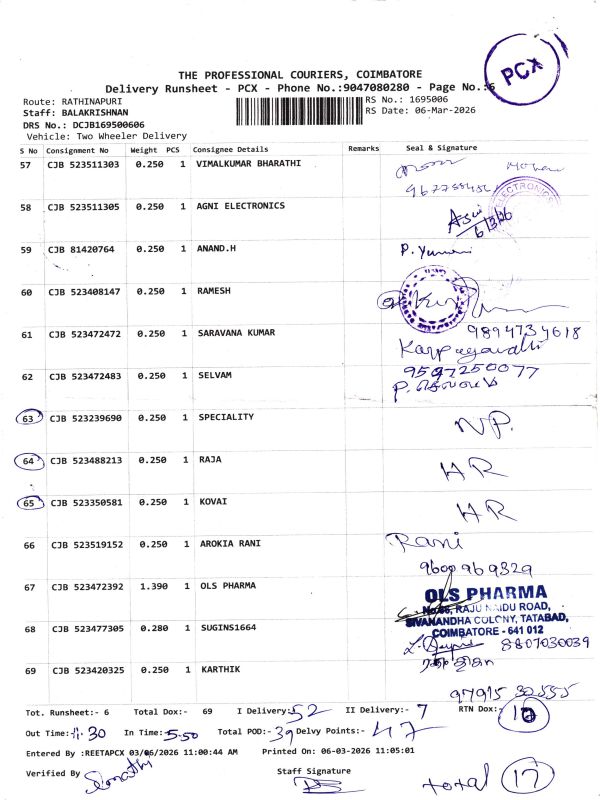 PCX
THE PROFESSIONAL COURIERS, COIMBATORE
Delivery Runsheet - PCX - Phone No.:9047080280 - Page No.:6
Route: RATHINAPURI
RS No.: 1695006
Staff: BALAKRISHNAN
RS Date: 06-Mar-2026
DRS No.: DCJB169500606
Vehicle: Two Wheeler Delivery
S No Consignment No Weight PCS Consignee Details Remarks Seal & Signature
57 CJB 523511303 0.250 1 VIMALKUMAR BHARATHI
ELECTRONICS
58 CJB 523511305 0.250 1 AGNI ELECTRONICS
6/3/26
59 CJB 81420764 0.250 1 ANAND.H P.
60 CJB 523408147 0.250 1 RAMESH
9894734618
61 CJB 523472472 0.250 1 SARAVANA KUMAR
9597250077
62 CJB 523472483 0.250 1 SELVAM
63 CJB 523239690 0.250 1 SPECIALITY NP.
64 CJB 523488213 0.250 1 RAJA HR
65 CJB 523350581 0.250 1 KOVAI HR
66 CJB 523519152 0.250 1 AROKIA RANI Rani
9600969329
67 CJB 523472392 1.390 1 OLS PHARMA
OLS PHARMA
RAJU NAIDU ROAD,
SIVANANDHA COLONY, TATABAD,
COIMBATORE - 641 012
68 CJB 523477305 0.280 1 SUGINS1664
8807030039
69 CJB 523420325 0.250 1 KARTHIK
97915 30555
Tot. Runsheet:- 6 Total Dox:- 69 I Delivery:- 52 II Delivery:- 7 RTN Dox:- 10
Out Time:- 11.30 In Time:- 5.50 Total POD:- 39 Delvy Points:- 47
Entered By :REETAPCX 03/06/2026 11:00:44 AM Printed On: 06-03-2026 11:05:01
Verified By
Staff Signature
total 17